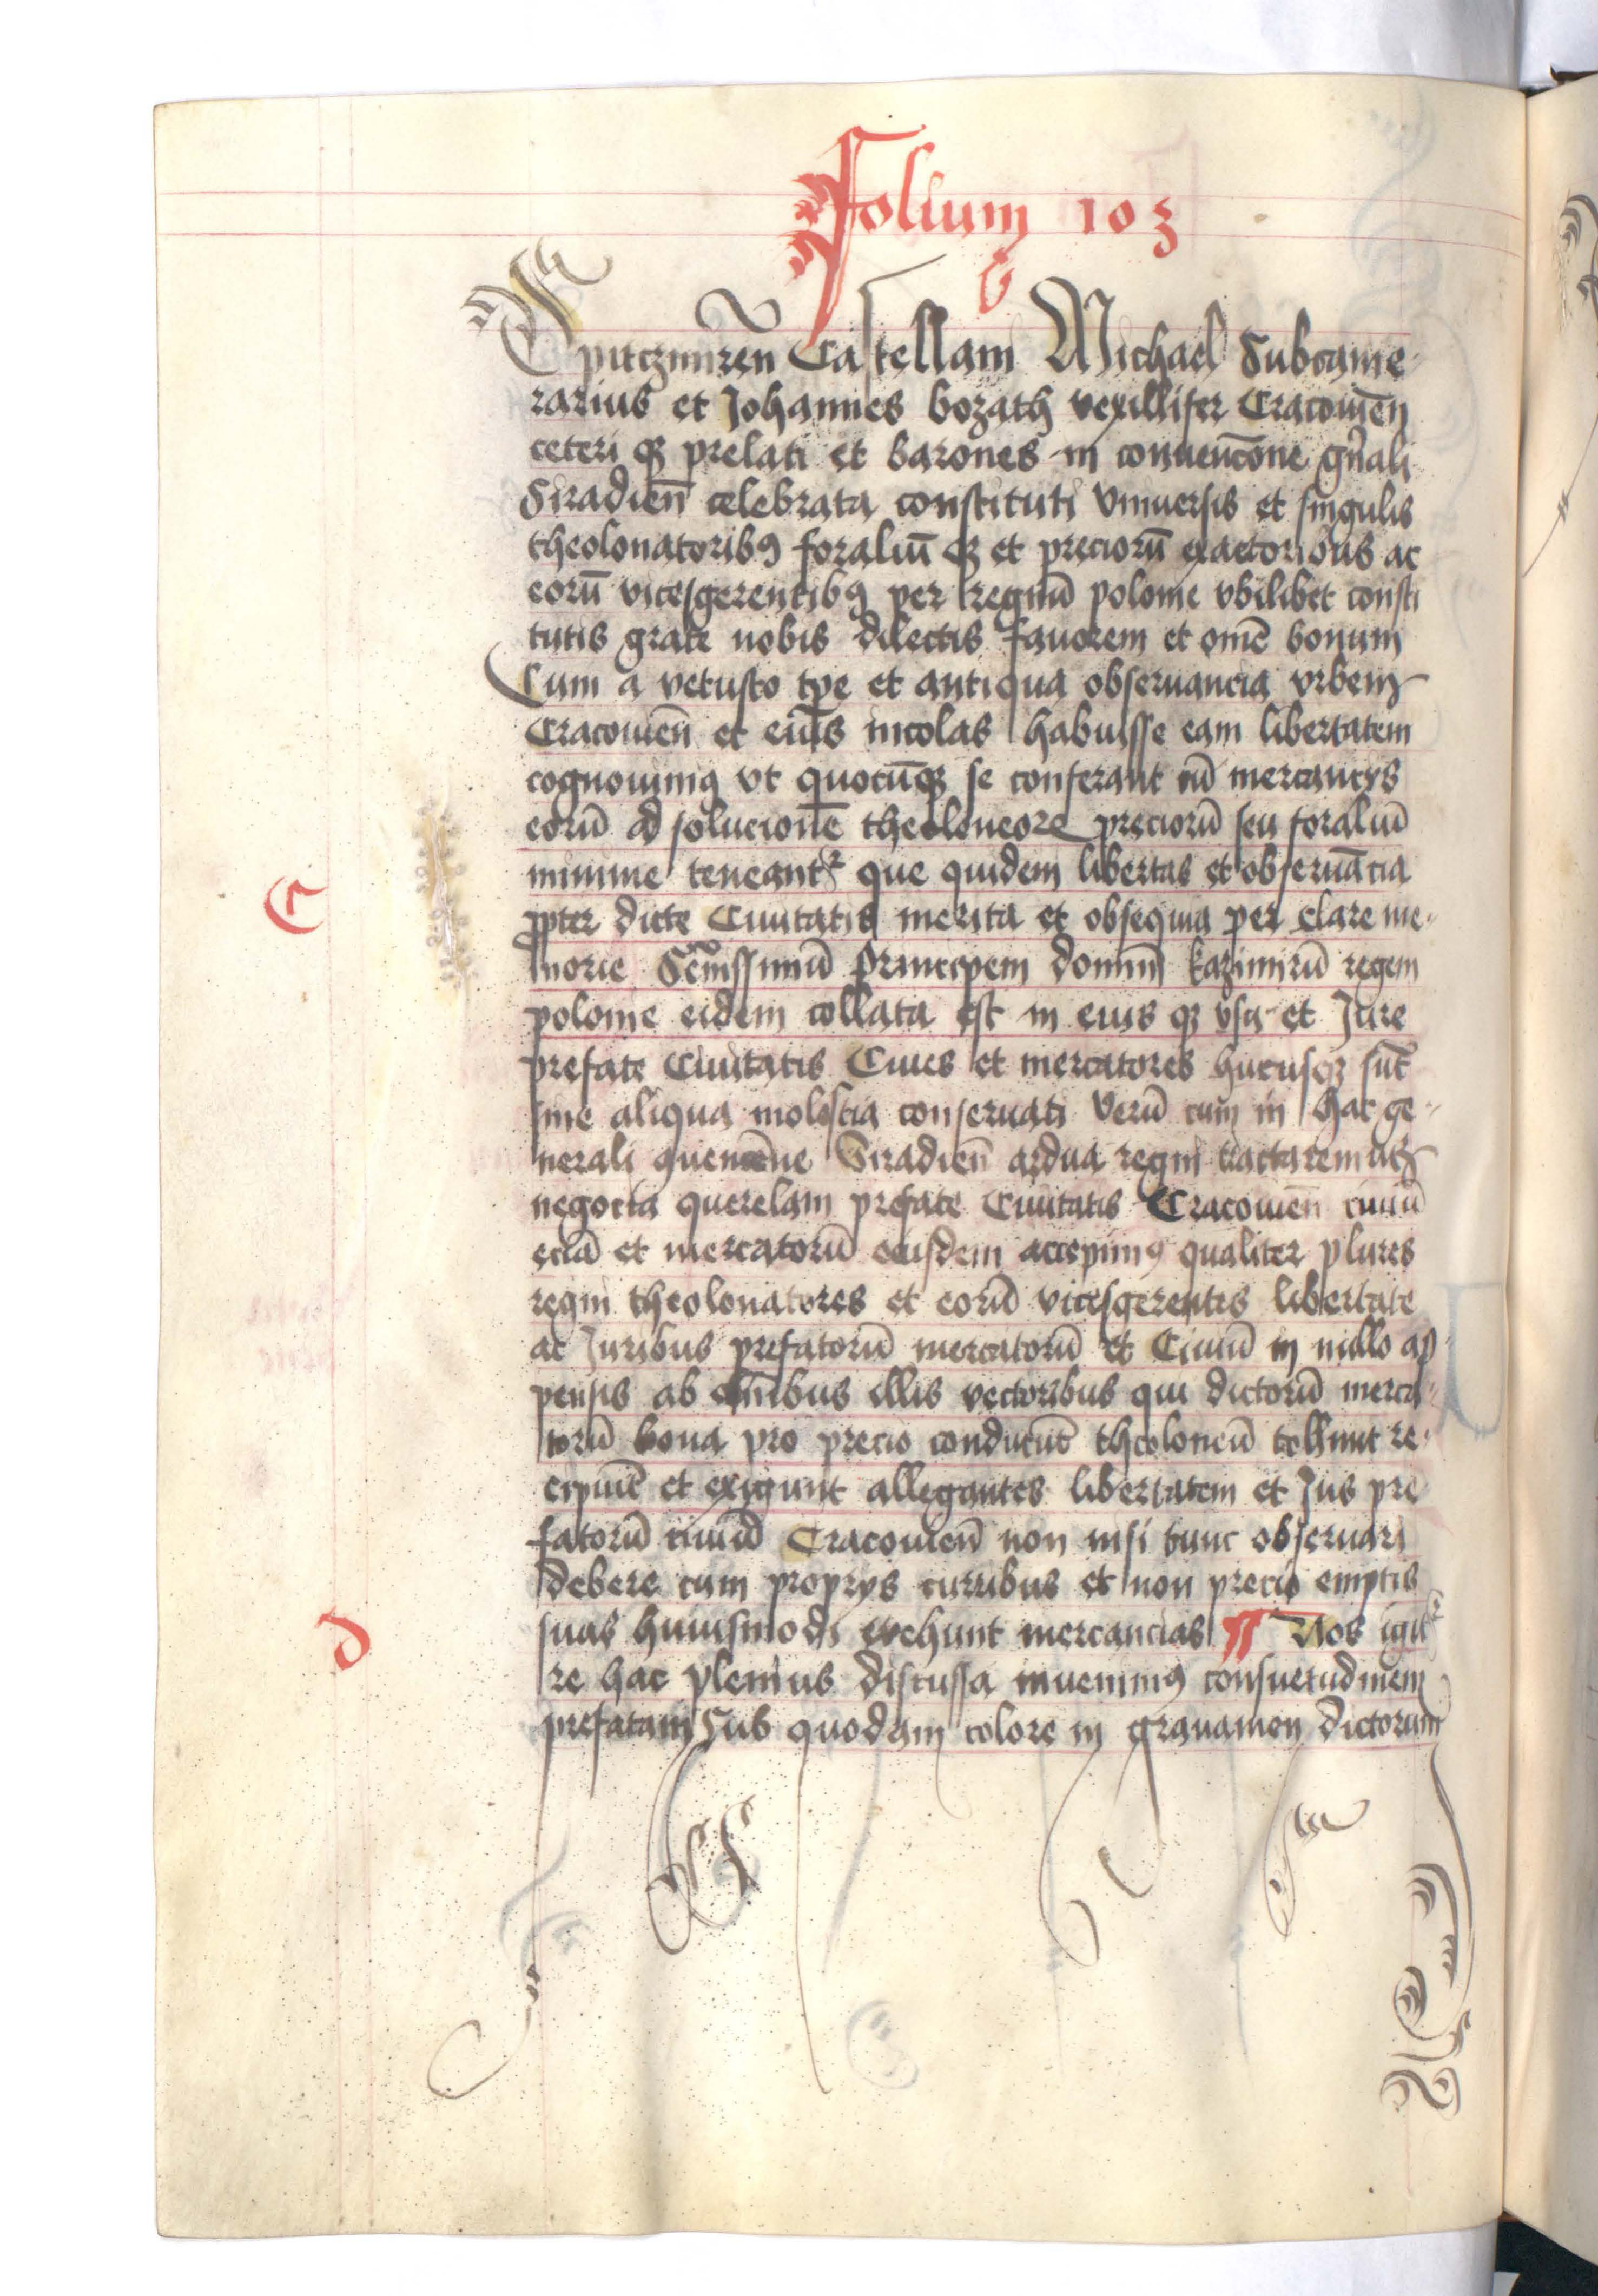 Folium 103
b
Spitczimiren̄ Castellani Michael Subcame-
rarius et Johannes bozath vexillifer Cracouien̄
ceteri qꝫ prelati et barones in conuenc̄one gn̄ali
Siradien̄ celebrata constituti Vniuersis et singulis
theolonatoribꝯ foraliū qꝫ et preciorū exactoribus ac
eorū vicesgerentibꝯ per regnū polonie vbilibet consti
tutis grate nobis dilectis fauorem et om̄e bonum
Cum a vetusto tp̄e et antiqua obseruancia vrbem
Cracouien̄ et eius incolas habuisse eam libertatem
cognouimꝯ vt quocūqꝫ se conferant cū mercancys
eorū ad solucionē theoloneorꝝ preciorū seu foraliū
minime teneantᷣ que quidem libertas et obseruācia
C
ꝓpter dicte Ciuitatis merita et obsequia per clare me-
morie Seren̄issimū Principem dominū kazimirū regem
polonie eidem collata est in eius qꝫ vsu et Jure
prefate Ciuitatis Ciues et mercatores hucusqꝫ sūt
sine aliqua molestia conseruati Verū cum in hac ge-
nerali ꝯuenc̄one Siradien̄ ardua regni tractaremus
negocia querelam prefate Ciuitatis Cracouien̄ ciuiū
eciā et mercatorū eiusdem accepimꝯ qualiter plures
regni theolonatores et eorū vicesgerentes libertate
ac Juribus prefatorū mercatorū et Ciuiū in nullo ap-
pensis ab om̄ibus illis vectoribus qui dictorū merca-
torū bona pro precio conducūt theoloneū tollunt re-
cipiūt et exigunt allegantes libertatem et Jus pre
fatorū ciuiū Cracouien̄ non nisi tunc obseruari
debere cum proprys curribus et non precio emptis
d
suas huiusmodi vehunt mercancias ¶ Nos igitᷣ
re hac plenius discussa inuenimꝯ consuetudinem
prefatam Sub quodam colore in grauamen dictorum